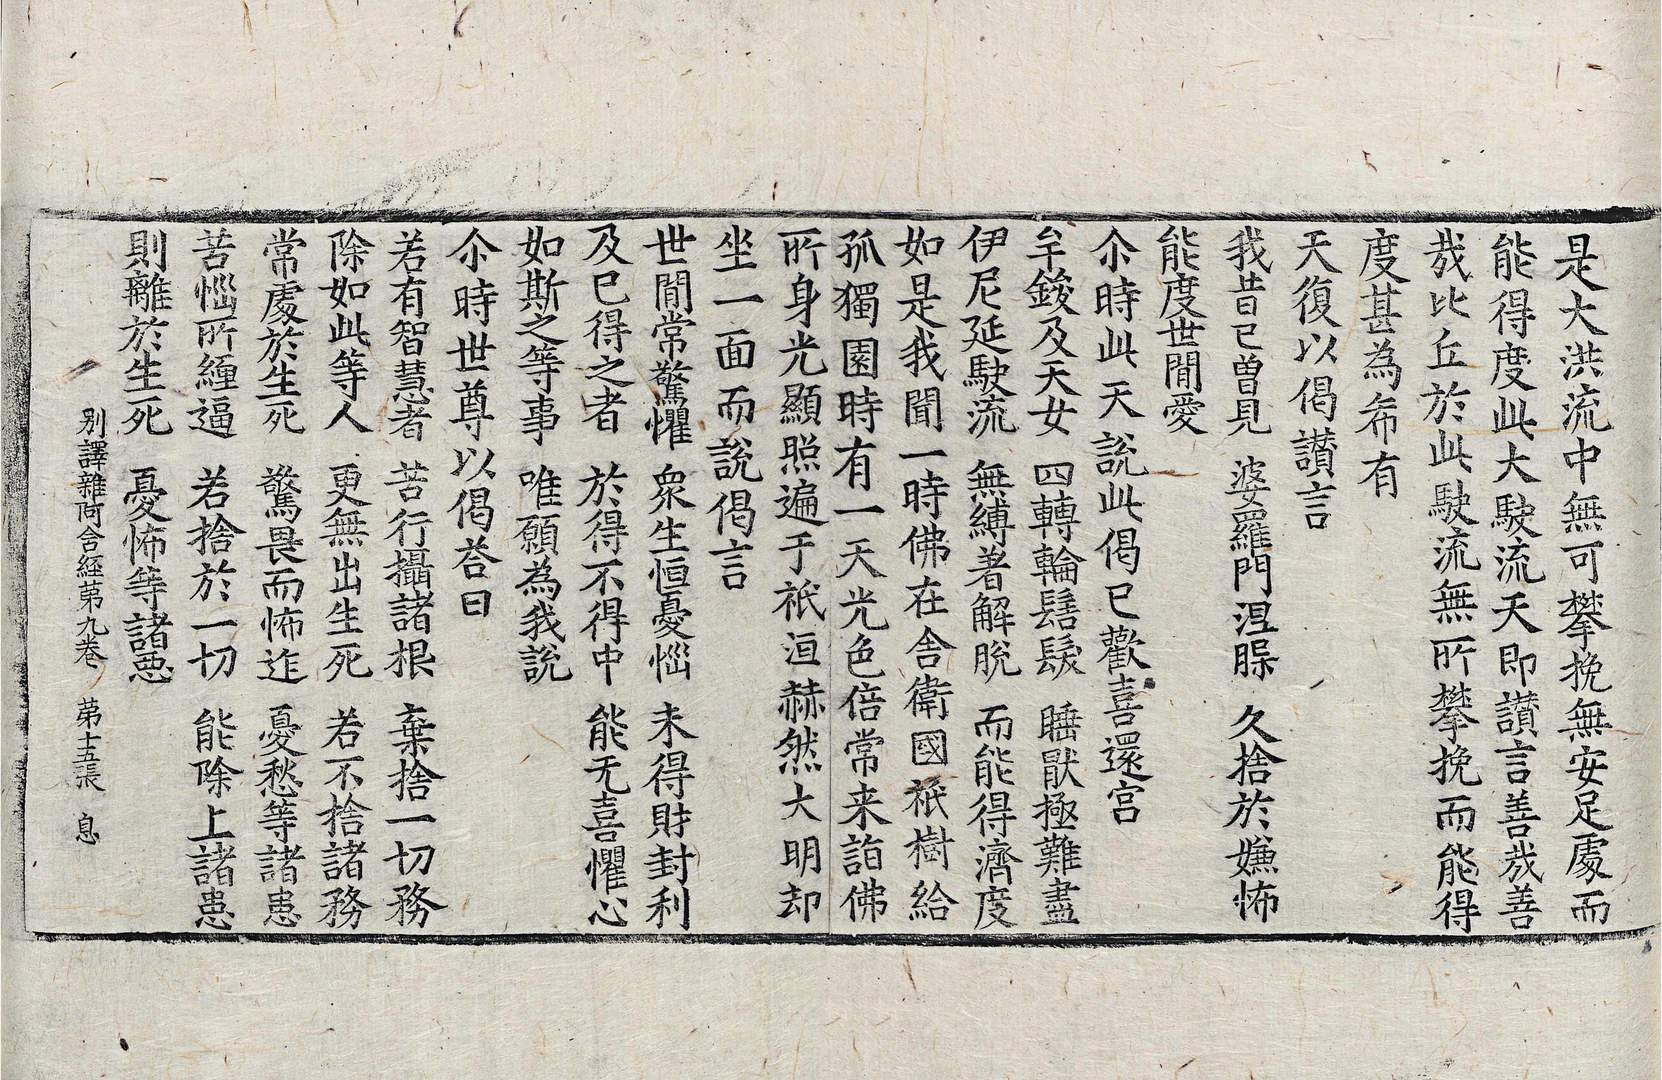 是大洪流中無可攀挽無安足處而
能得度此大駛流天即讃言善㢤善
㢤比丘於此駛流無所攀挽而能得
度甚為希有
天復以偈讃言
我昔已曽見　婆羅門涅槃　久捨於嫌怖
能度世間愛
尒時此天說此偈已歡喜還宮
牟鋑及天女　四轉輪髻髮　睡猒極難盡
伊尼延駛流　無縛著解脫　而能得濟度
如是我聞一時佛在舎衛國祇樹給
孤獨園時有一天光色倍常来詣佛
所身光顯照遍于祇洹赫然大明却
坐一面而說偈言
世間常驚懼　衆生恒憂惱　未得財封利
及已得之者　於得不得中　能无喜懼心
如斯之等事　唯願為我說
尒時世尊以偈荅曰
若有智慧者　苦行攝諸根　棄捨一切務
除如此等人　更無出生死　若不捨諸務
常處於生死　驚畏而怖迮　憂愁等諸患
苦惱所纏逼　若捨於一切　能除上諸患
則離於生死　憂怖等諸惡
別譯雜阿含経苐九巻　苐十五張　息